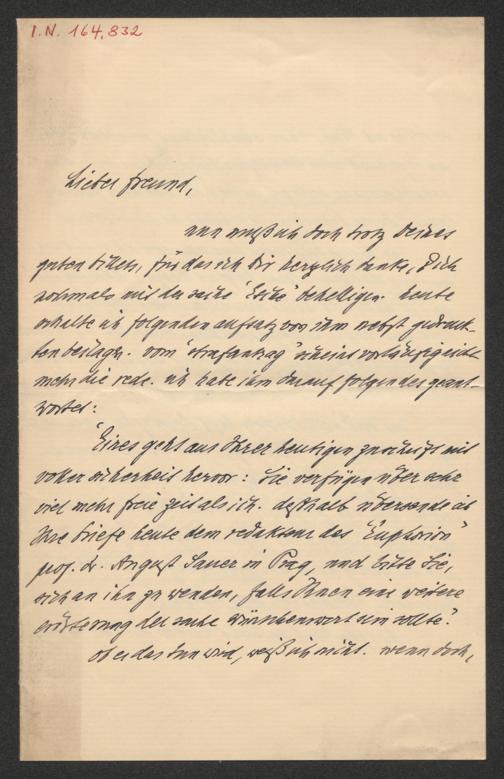 I.N. 164.832
Lieber freund,
nun muß ich doch trotz Deines
guten billets, für das ich Dir herzlich danke, Dich
nochmals mit der sache behelligen. heute
erhalte ich folgenden aufsatz von ihm nebst gedruck-
ten beilagen. vom "strafantrag" scheint vorläufig nicht
mehr die rede. ich habe ihm darauf folgendes geant-
wortet:
"Eines geht aus Ihrer heutigen zuschrift mit
voller sicherheit hervor: Sie verfügen über sehr
viel mehr freie zeit als ich. deßhalb übersende ich
Ihre briefe heute dem redakteur des "Euphorion"
prof. dr. August Sauer in Prag, und bitte Sie,
sich an ihn zu wenden, falls Ihnen eine weitere
erörterung der sache wünschenwert sein sollte."
ob er das tun wird, weiß ich nicht. wenn doch,